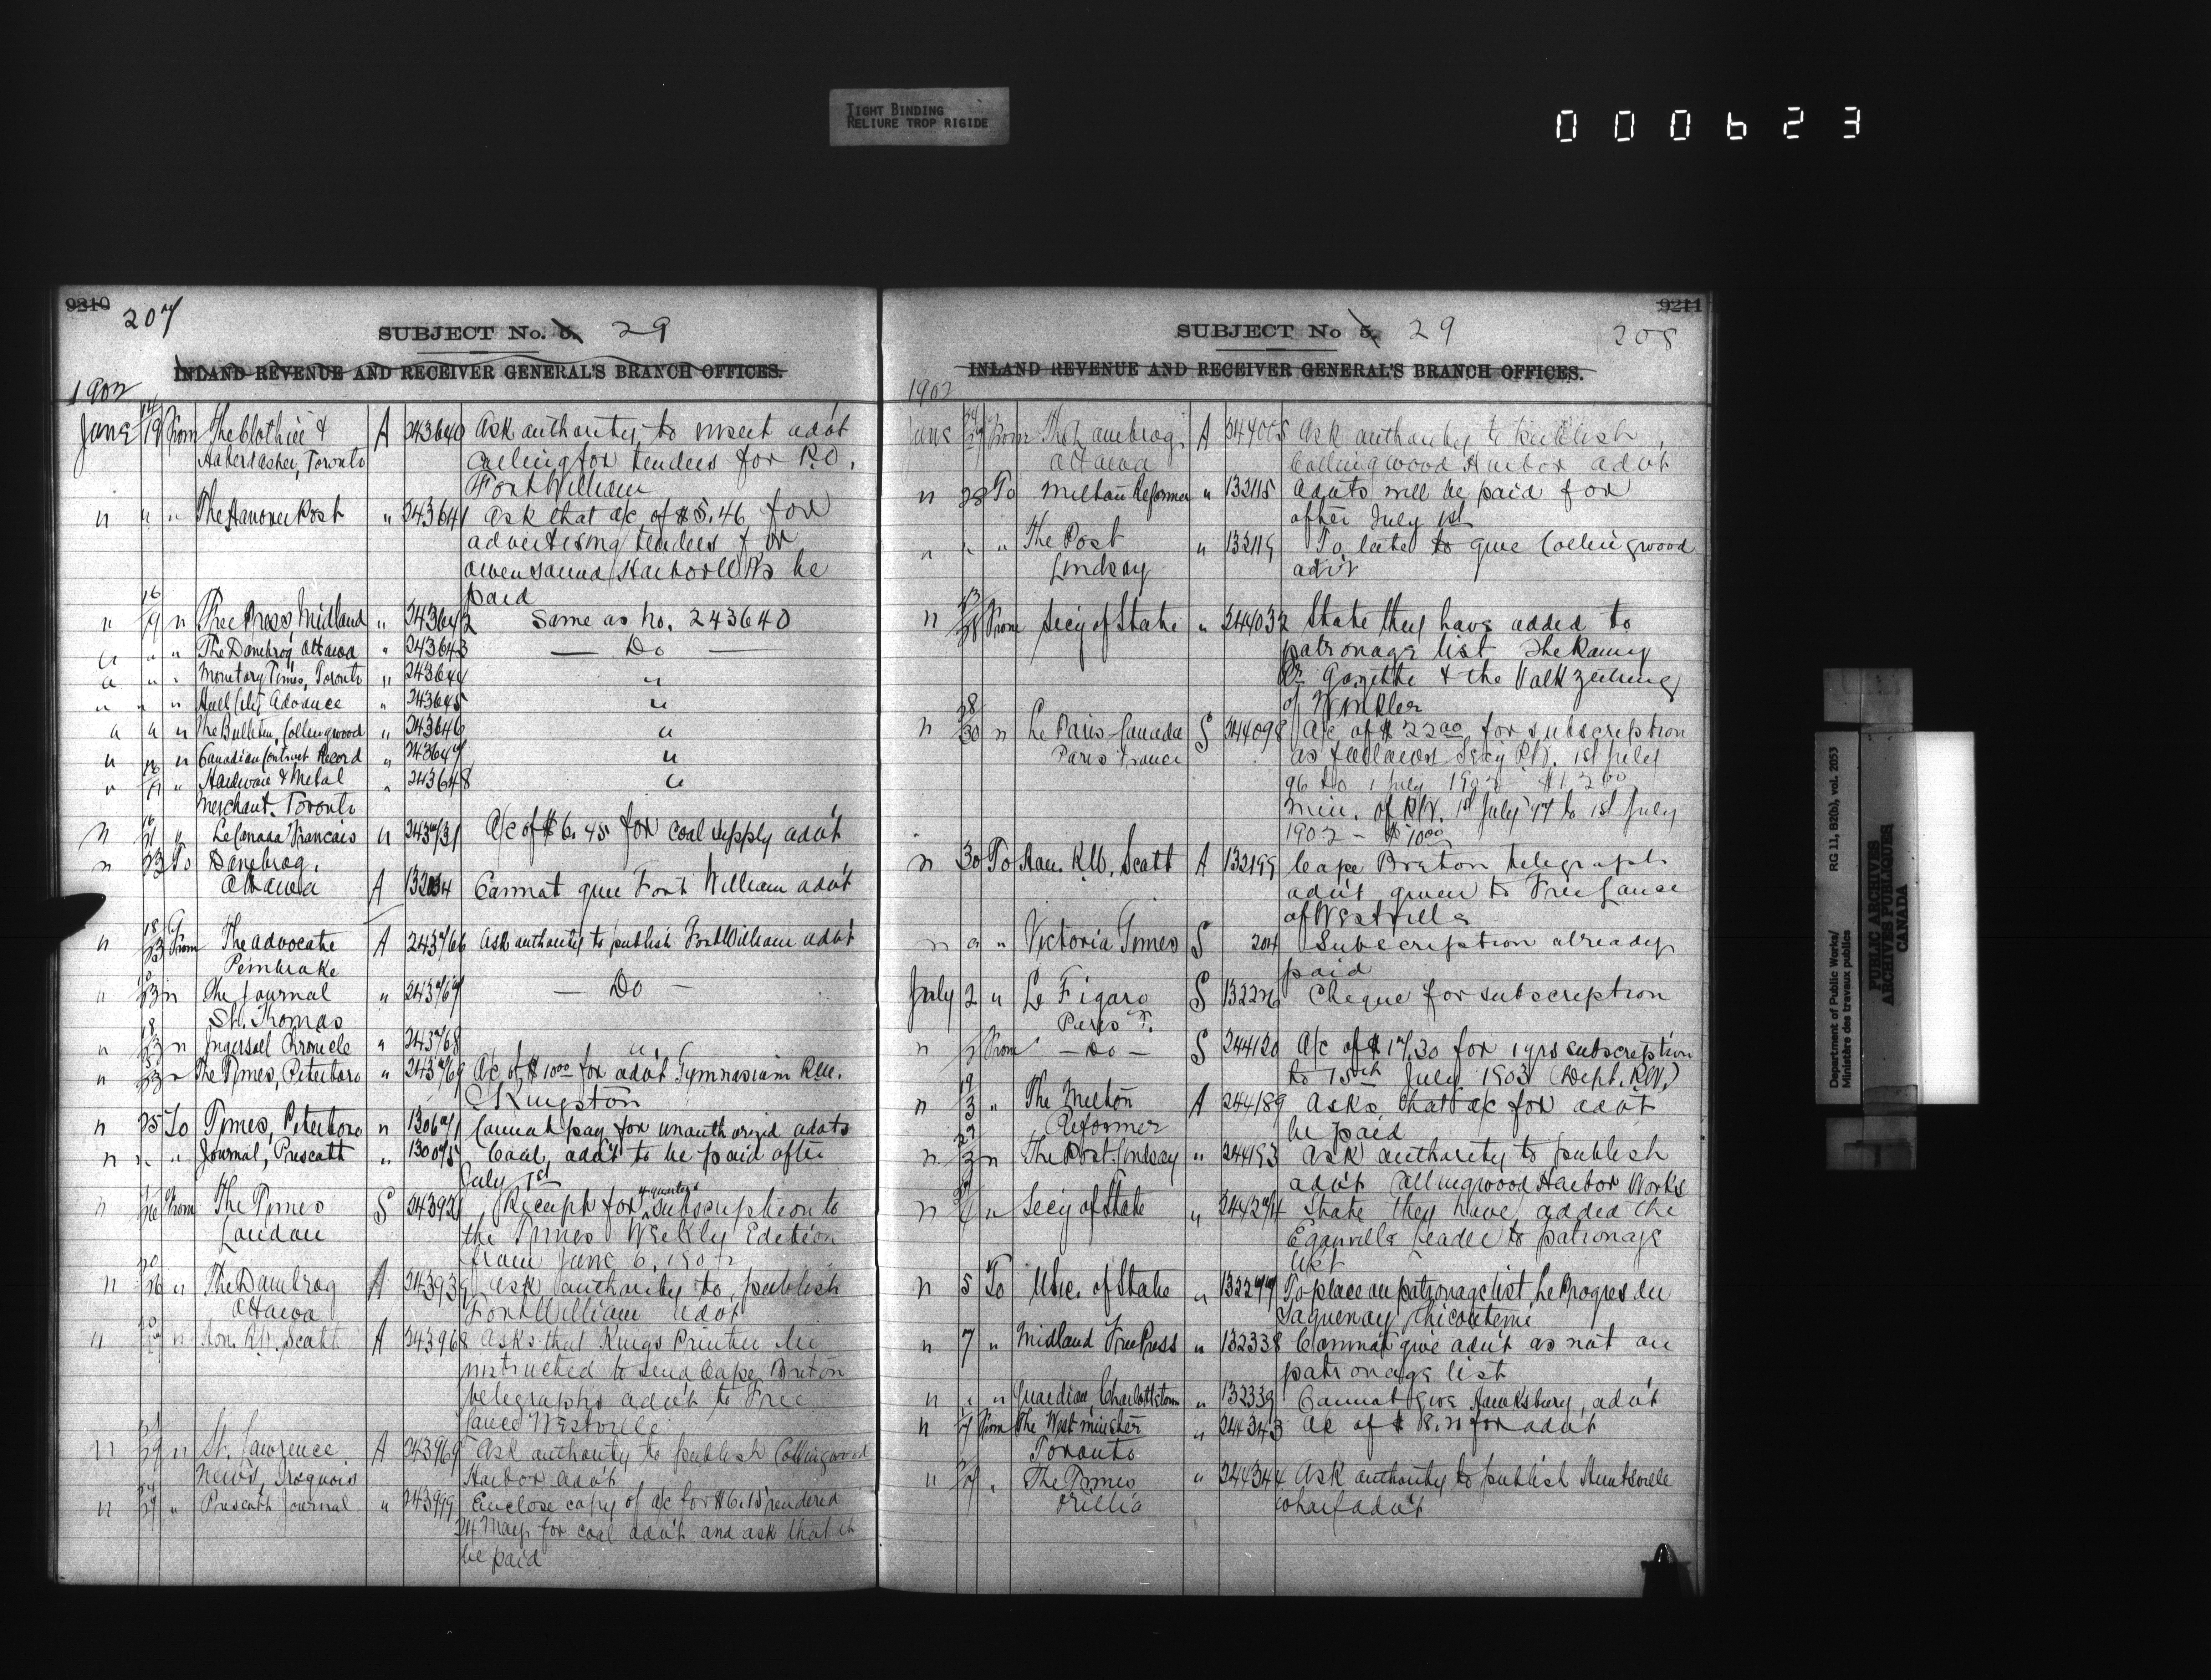 TIGHT BINDING
RELIURE TROP RIGIDE
000623
9210 207
SUBJECT No. 5. 29
INLAND REVENUE AND RECEIVER GENERAL'S BRANCH OFFICES.
1902
June 14/19 From The Clothier & A 243640 Ask authority to insert advt
Haberdasher, Toronto calling for tenders for P.O.
Fort William
" " " The Hanover Post " 243641 Ask that a/c of $5.46 for
advertising tenders for
Owen Sound Harbor Wks be
paid
" 16/19 " Free Press, Midland " 243642 Same as No. 243640
" " " The Danebrog Ottawa " 243643 — Do —
" " " Monetary Times, Toronto " 243644 "
" " " Hull City Advance " 243645 "
" " " The Bulletin, Collingwood " 243646 "
" " " Canadian Contract Record " 243647 "
" " Hardware & Metal " 243648 "
Merchant. Toronto
" 16/21 " Le Canada Francais " 243731 A/c of $6.45 for coal supply advt
" 23 To Danebrog,
Ottawa A 132034 Cannot give Fort William advt
" 18/23 From The Advocate A 243766 Ask authority to publish Fort William advt
Pembroke
" 23 " The Journal " 243767 — Do —
St. Thomas
" 18/23 " Ingersoll Chronicle " 243768 "
" 23 " The Times, Peterboro " 243769 A/c of $10.00 for advt Gymnasium R.M.C.
Kingston
" 25 To Times, Peterboro " 13067 Cannot pay for unauthorized advts
" " " Journal, Prescott " 13007 Coal advt to be paid after
July 1st
" 26 From The Times S 24392 Receipt for 4 quarters subscription to
London the Times Weekly Edition
from June 6, 1902
" 20/26 " The Danebrog A 243939 Ask authority to publish
Ottawa Fort William advt
" " Hon. R.W. Scott A 243968 Asks that Kings Printer be
instructed to send Cape Breton
telegraphs advt to Free
Lance Westville
" 27 " St. Lawrence A 243969 Ask authority to publish Collingwood
News, Iroquois Harbor advt
" 27 " Prescott Journal " 243999 Enclose copy of a/c for $6.15 rendered
24 May for coal advt and ask that it
be paid
9211
SUBJECT No 5. 29 208
INLAND REVENUE AND RECEIVER GENERAL'S BRANCH OFFICES.
1902
June 24/27 From The Danebrog A 244005 Ask authority to publish
Ottawa Collingwood Harbor advt
" 28 To Milton Reformer " 132115 Advts will be paid for
after July 1st
" " " The Post " 132119 To late to give Collingwood
Lindsay advt
" 28 From Secy of State " 244032 State they have added to
patronage list The Rainy
Rr Gazette & the Volkzeitung
of Winkler
" 28/30 " Le Paris-Canada S 244098 A/c of $22.00 for subscription
Paris France as follows Secy P.W. 1st July
96 to 1 July 1902 $12.00
Min. of P.W. 1st July 97 to 1st July
1902 - $10.00
" 30 To Hon. R.W. Scott A 132199 Cape Breton telegraph
advt given to Free Lance
of Westville
" " " Victoria Times S 204 Subscription already
paid
July 2 " Le Figaro S 132226 Cheque for subscription
Paris F.
" From — Do — S 244120 A/c of $17.30 for 1 yrs subscription
to 15th July 1903 (Dept. P.W.)
" 3 " The Milton A 244189 Asks that a/c for advt
Reformer be paid
" 27/3 " The Post Lindsay " 244193 Ask authority to publish
advt Collingwood Harbor Works
" " Secy of State " 244274 State they have added the
Eganville Leader to patronage
list
" 5 To U. Sec. of State " 132277 To place on patronage list, Le Progres du
Saguenay Chicoutimi
" 7 " Midland Free Press " 132338 Cannot give advt as not on
patronage list
" " " Guardian, Charlottetown " 132339 Cannot give Hawksbury, advt
" 7 From The Westminster " 244343 A/c of $8.20 for advt
Toronto
" 7 " The Times " 244344 Ask authority to publish Huntsville
Orillia wharf advt
Department of Public Works/ RG 11, B2(b), vol. 2053
Ministère des travaux publics
PUBLIC ARCHIVES
ARCHIVES PUBLIQUES
CANADA